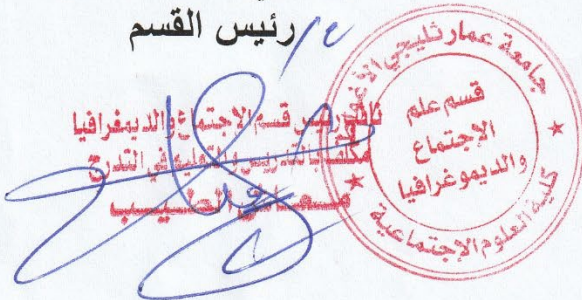 رئيس القسم
نائب رئيس قسم الاجتماع والديمغرافيا
مكلف بالتدريس والتعليم في التدرج
الطيب
جامعة عمار ثليجي الأغواط
قسم علم
الإجتماع
والديموغرافيا
كلية العلوم الإجتماعية